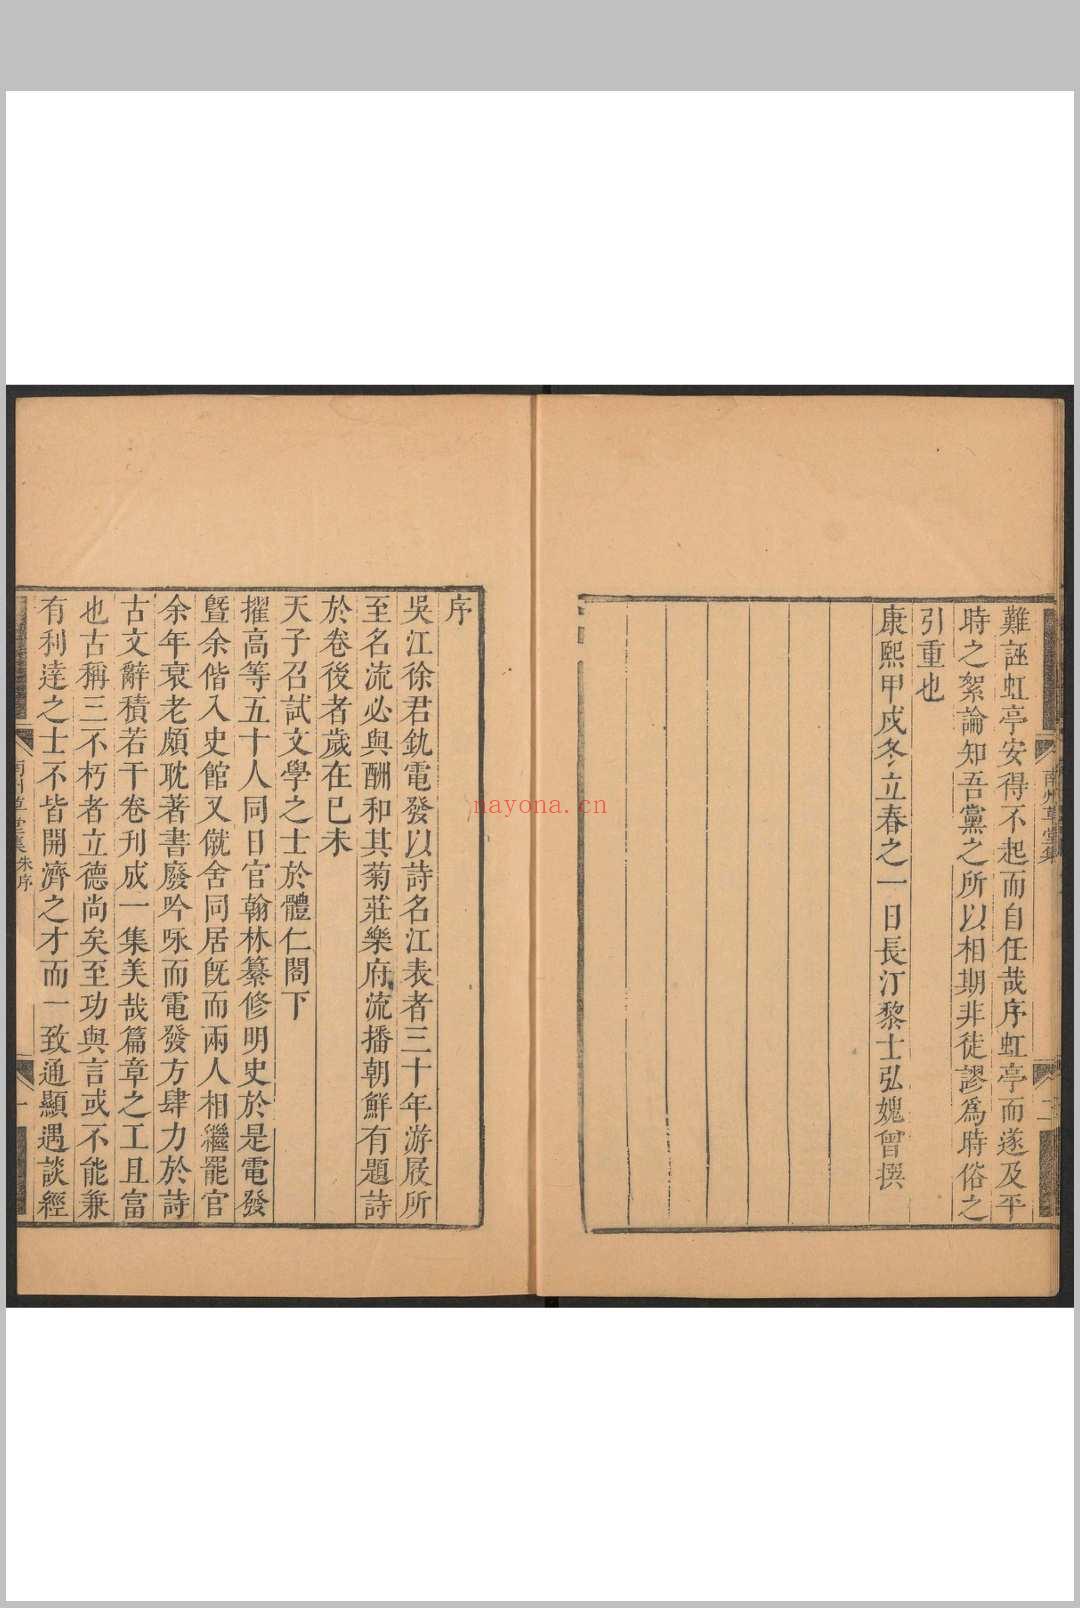 難誣虹亭安得不起而自任哉序虹亭而遂及平
時之絮論知吾黨之所以相期非徒謬爲時俗之
引重也
康熙甲戌冬立春之一日長汀黎士弘媿曾撰
南州草堂集
二
序
吳江徐君釚電發以詩名江表者三十年游屐所
至名流必與酬和其菊莊樂府流播朝鮮有題詩
於卷後者歲在已未
天子召試文學之士於體仁閣下
擢高等五十人同日官翰林纂修明史於是電發
暨余偕入史館又僦舍同居旣而兩人相繼罷官
余年衰老頗耽著書廢吟咏而電發方肆力於詩
古文辭積若干卷刋成一集美哉篇章之工且富
也古稱三不朽者立德尚矣至功與言或不能兼
有利達之士不皆開濟之才而一致通顯遇談經
南州草堂集 朱序
一
nayona.cn